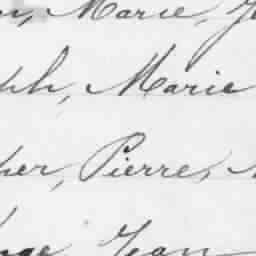 Marie,
ph, Marie
her, Pierre,
Jean